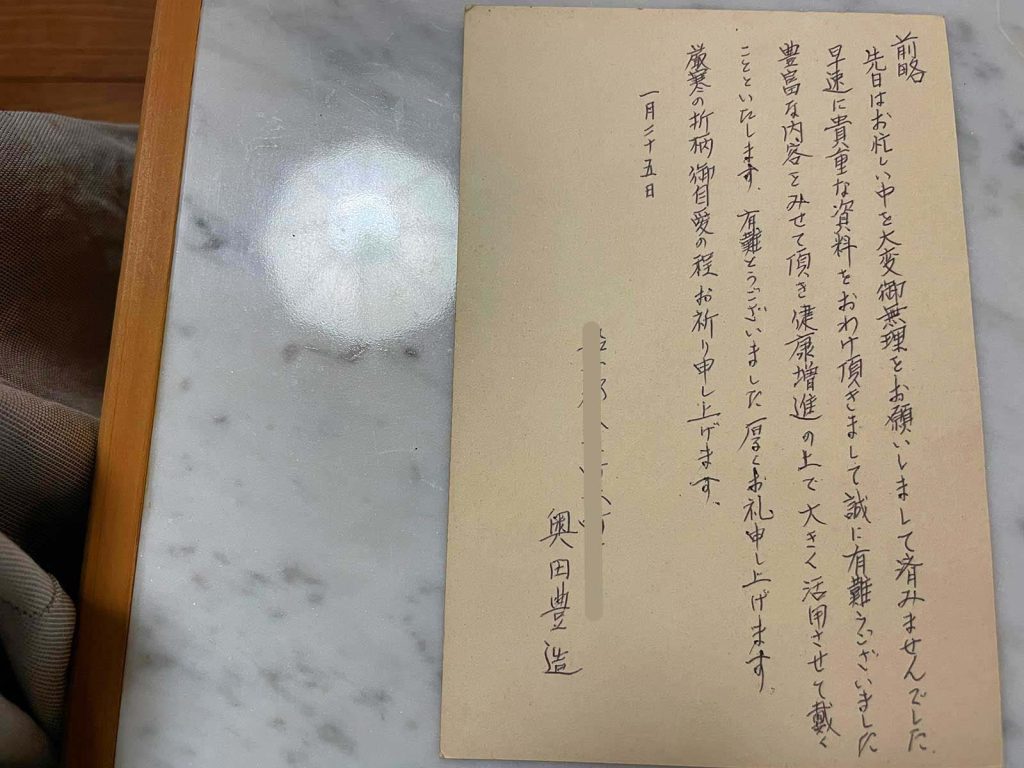 前略
先日はお忙しい中を大変御無理をお願いしまして済みませんでした
早速に貴重な資料をおわけ頂きまして誠に有難うございました
豊富な内容をみせて頂き健康増進の上で大きく活用させて戴く
ことといたします、有難とうございました厚くお礼申し上げます、
厳寒の折柄御自愛の程お祈り申し上げます、
一月二十五日
奥田豊造